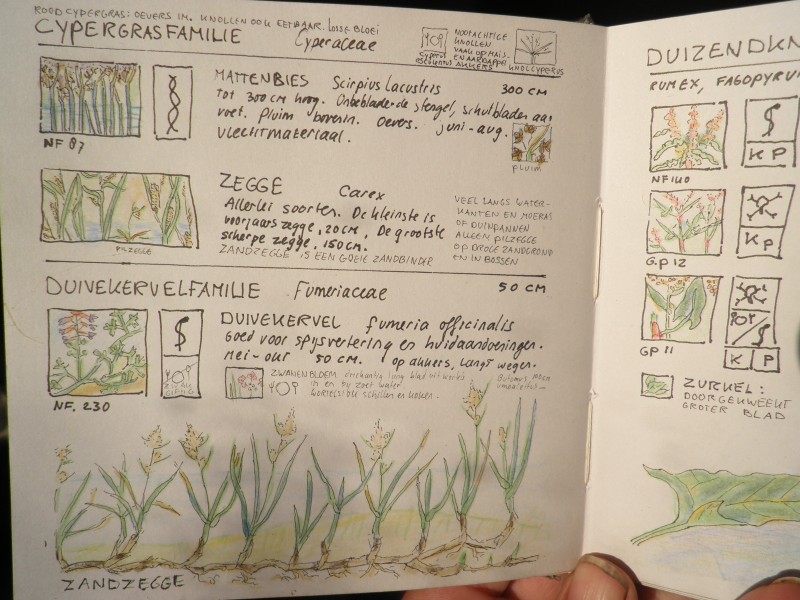 ROOD CYPERGRAS: OEVERS IN. KNOLLEN OOK EETBAAR. Losse Bloei
CYPERGRASFAMILIE Cyperaceae
Cyperus esculentus
NOOTACHTIGE
KNOLLEN
VAAK OP MAIS-
EN AARDAPPEL
AKKERS
KNOLCYPERUS
MATTENBIES Scirpius Lacustris 300 CM
tot 300 cm hoog. Onbebladerde stengel, schutbladen aan
voet. Pluim bovenin. Oevers. juni-aug.
Vlechtmateriaal.
pluim
NF 87
ZEGGE Carex
Allerlei soorten. De kleinste is
voorjaarszegge, 20cm, De grootste
scherpe zegge, 150cm.
ZANDZEGGE IS EEN GOEIE ZANDBINDER
VEEL LANGS WATER-
KANTEN EN MOERAS
OF DUINPANNEN
ALLEEN PILZEGGE
OP DROGE ZANDGROND
EN IN BOSSEN
PILZEGGE
DUIVEKERVELFAMILIE Fumeriaceae 50 CM
DUIVEKERVEL fumeria officinalis
Goed voor spijsvertering en huidaandoeningen.
mei-okt 50 cm. op akkers, langs wegen.
NF. 230
ZWANENBLOEM
in en bij zoet water
WORTELSTOK schillen en koken.
ZANDZEGGE
DUIZENDKN
RUMEX, FAGOPYRUM
NF 140
K P
G.P 12
K P
GP 11
K P
ZURKEL:
DOORGEKWEEKT
GROTER BLAD